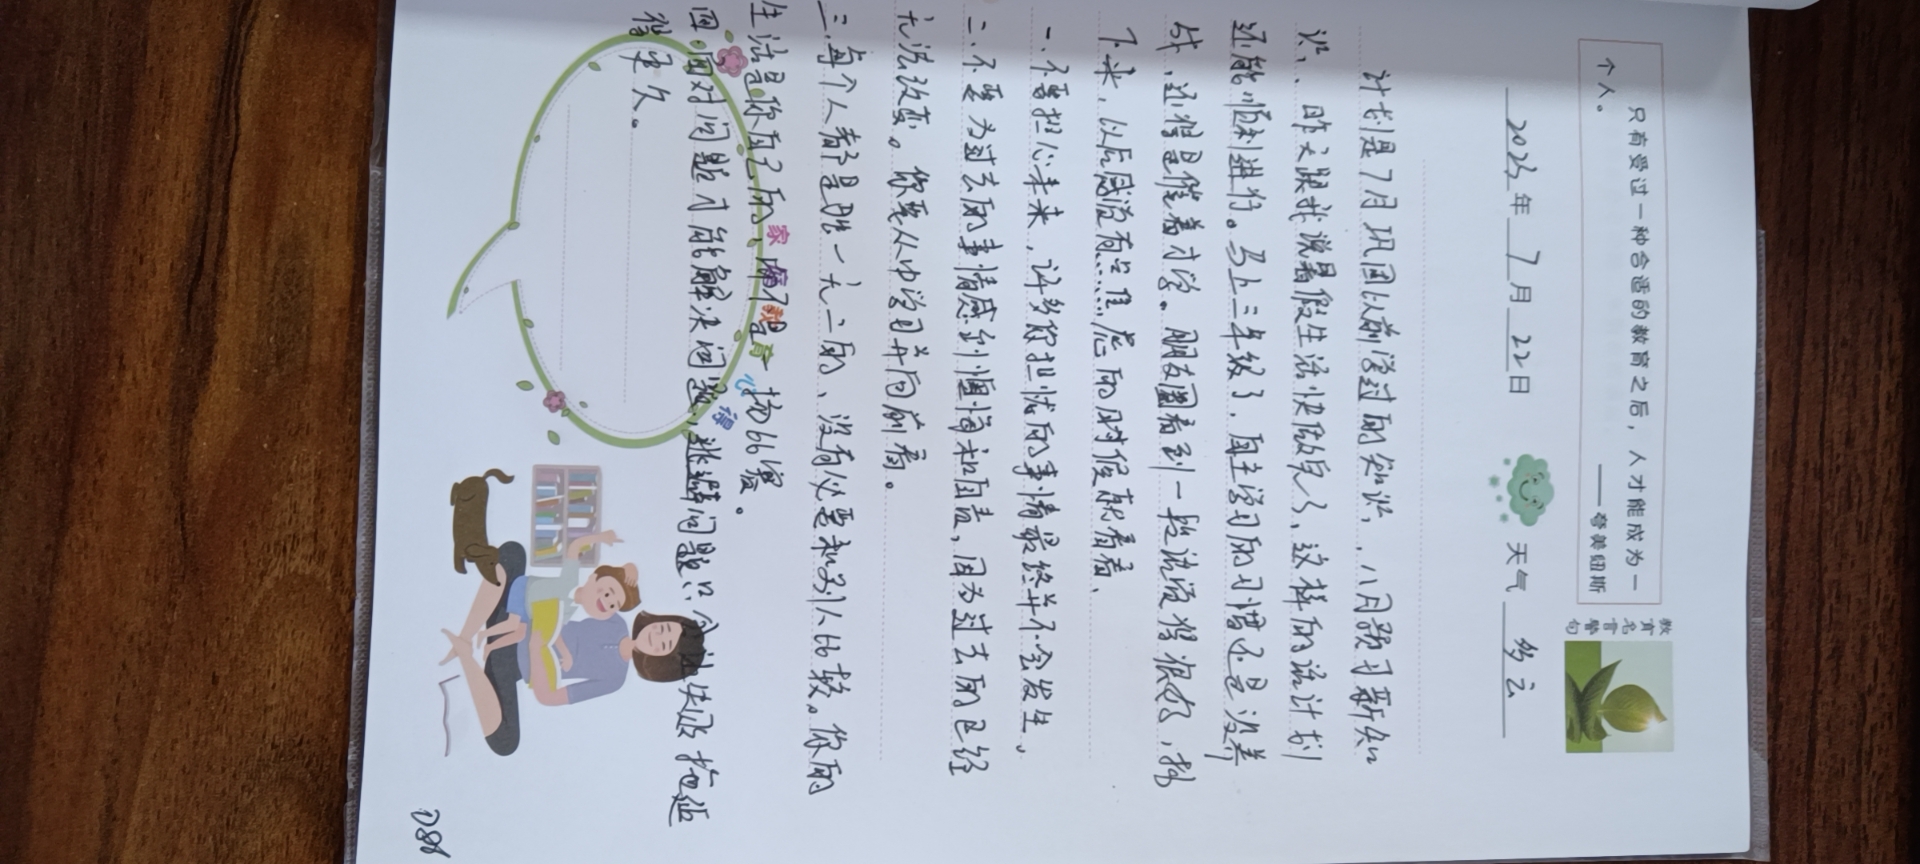 只有受过一种合适的教育之后，人才能成为一
个人。
——夸美纽斯
教育名言警句
2023年7月22日 天气 多云
计划是7月巩固以前学过的知识，八月预习新知
识，昨天跟我说暑假生活快做完了，这样的话计划
还能顺利进行。马上三年级了，自主学习的习惯还是没养
成，还得是催着才学。朋友圈看到一段话说得很好，抄
下来，以后感觉有点焦虑的时候就看看、
一、不要担心未来，许多你担忧的事情最终并不会发生。
二、不要为过去的事情感到懊悔和自责，因为过去的已经
无法改变。你要从中学习并向前看。
三、每个人都是独一无二的、没有必要和别人比较。你的
生活是你自己的、而不是攀比赛。
四、面对问题才能解决问题，逃避问题只会让失败拖延
得更久。
家庭教育心得
D86